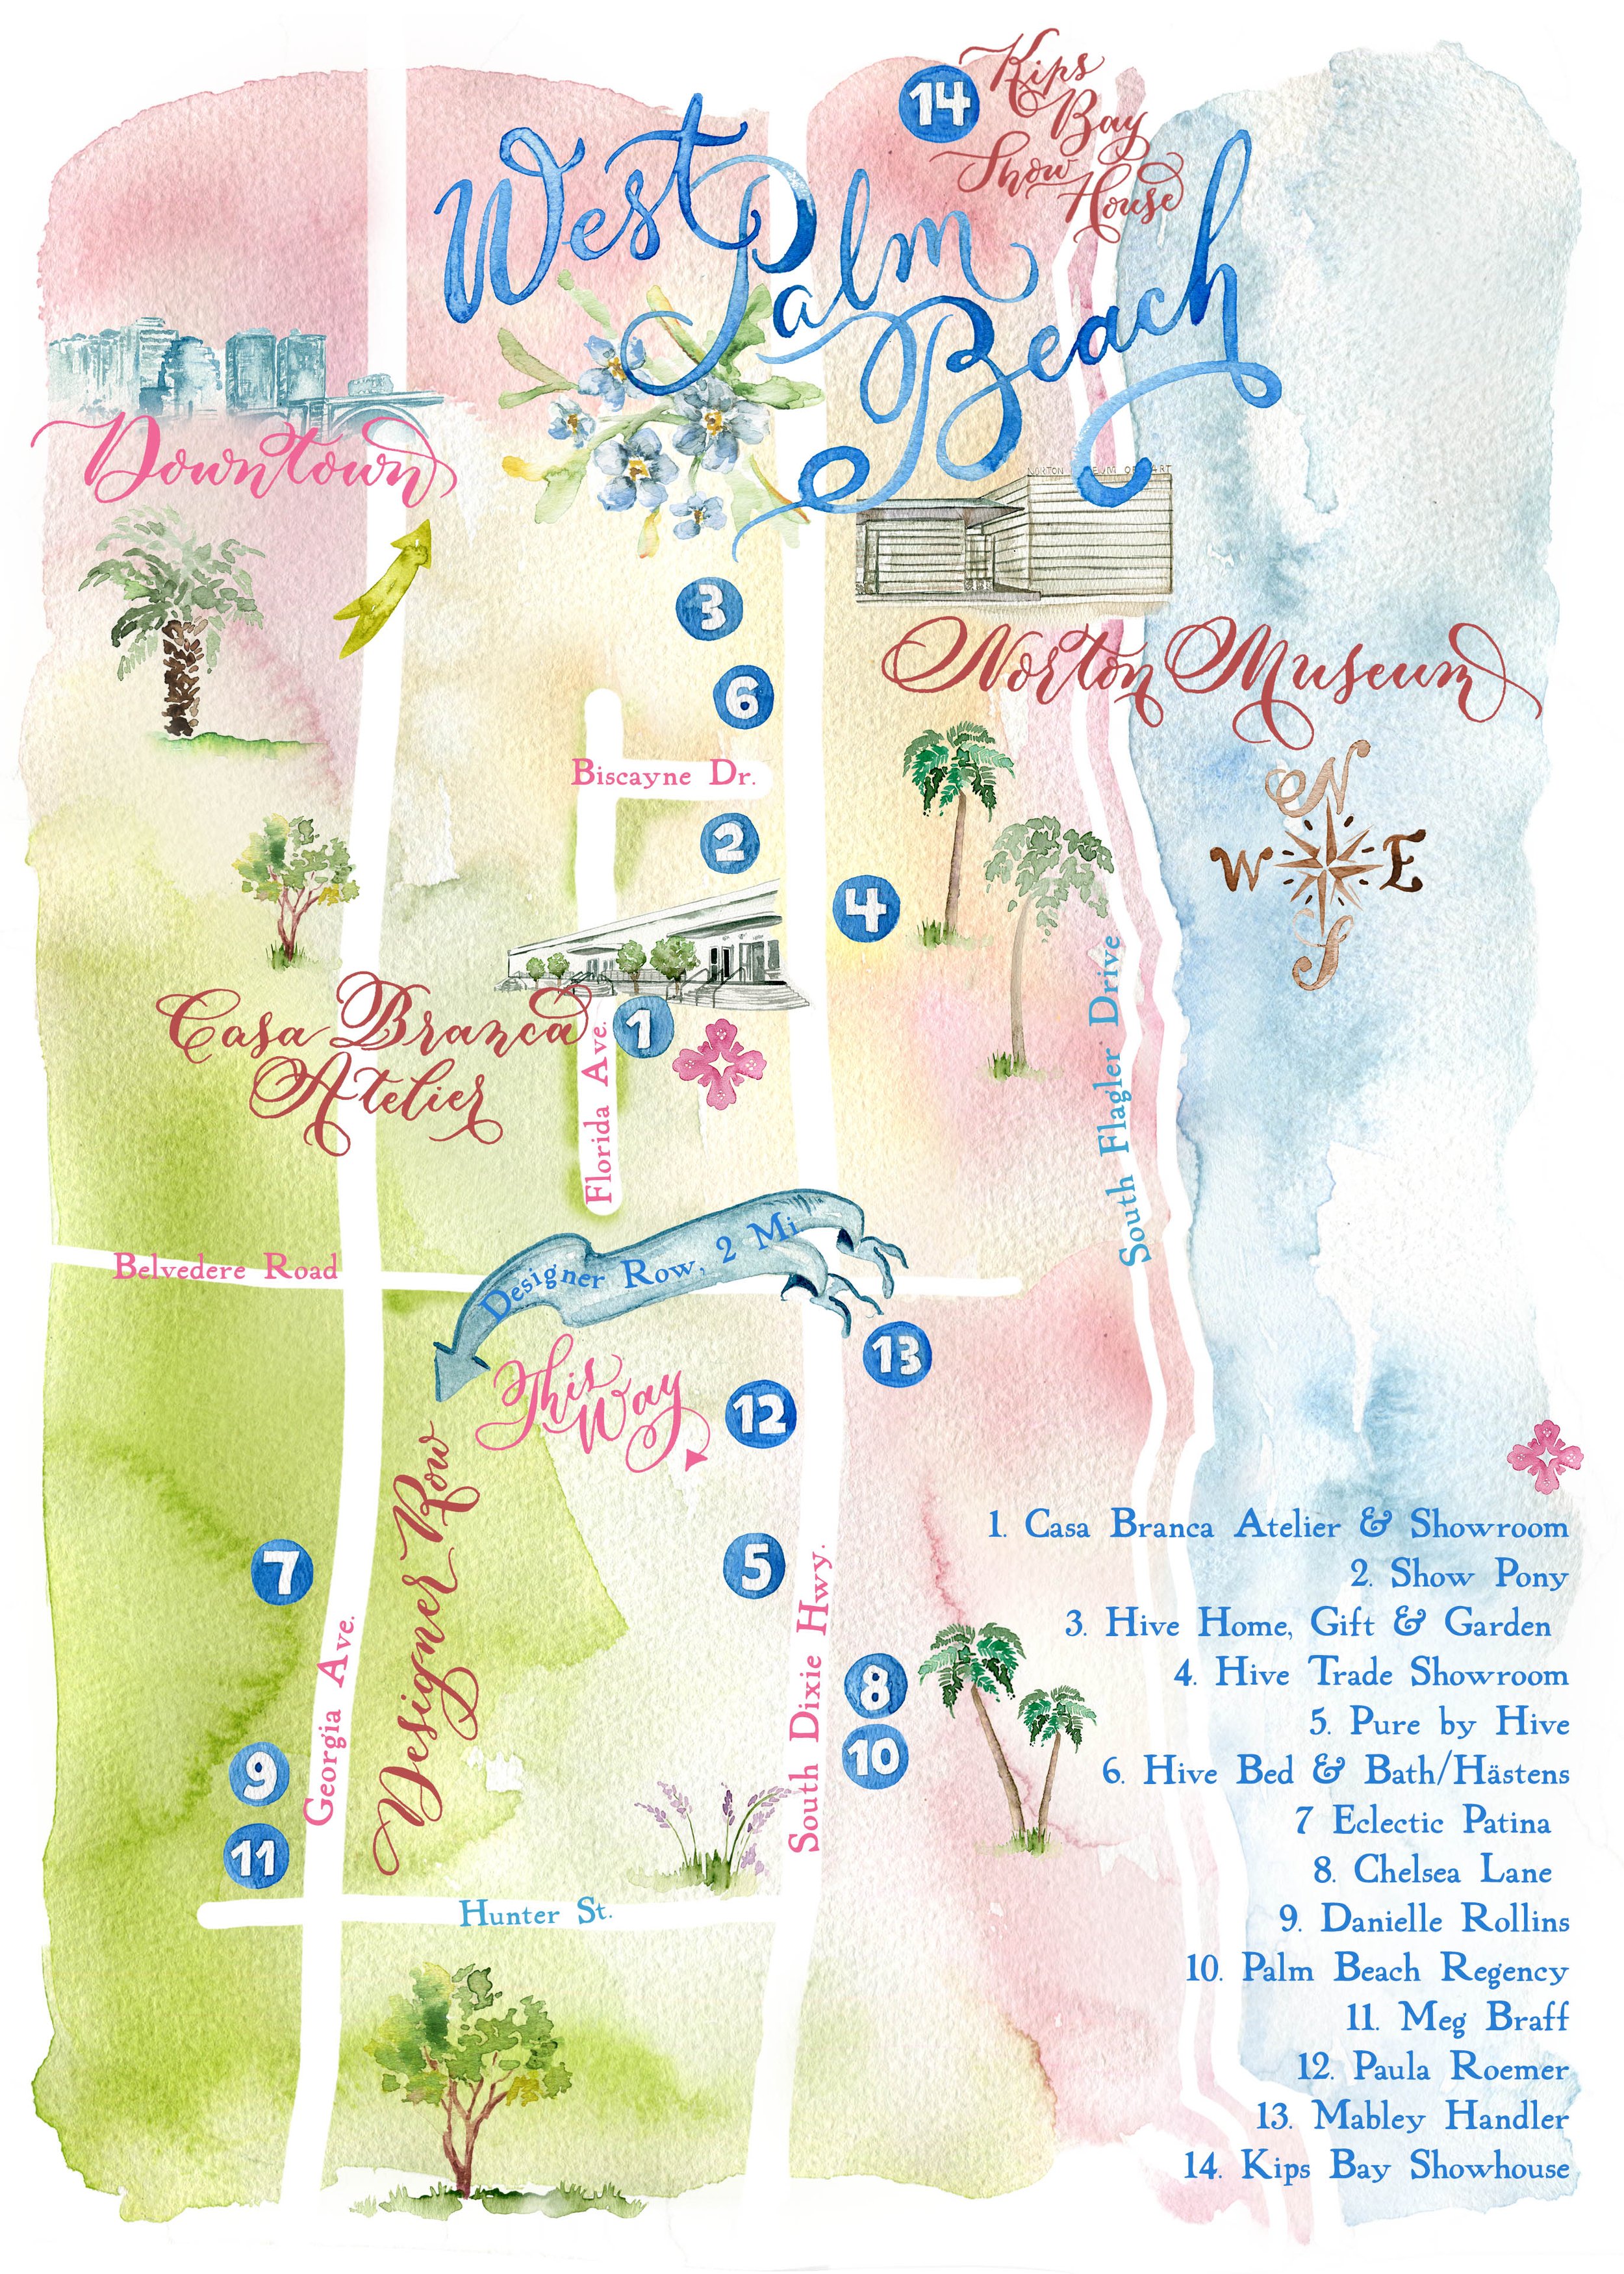 14
Kips
Bay
Show
House
West
Palm
Beach
Downtown
NORTON
EUM OF ART
3
Norton Museum
6
Biscayne Dr.
N
W E
S
2
4
South Flagler Drive
Casa Branca
Atelier
1
Florida Ave.
Belvedere Road
Designer Row, 2 Mi.
This
Way
13
12
Designer Row
7
5
Georgia Ave.
South Dixie Hwy.
8
10
9
11
Hunter St.
1. Casa Branca Atelier & Showroom
2. Show Pony
3. Hive Home, Gift & Garden
4. Hive Trade Showroom
5. Pure by Hive
6. Hive Bed & Bath/Hästens
7 Eclectic Patina
8. Chelsea Lane
9. Danielle Rollins
10. Palm Beach Regency
11. Meg Braff
12. Paula Roemer
13. Mabley Handler
14. Kips Bay Showhouse